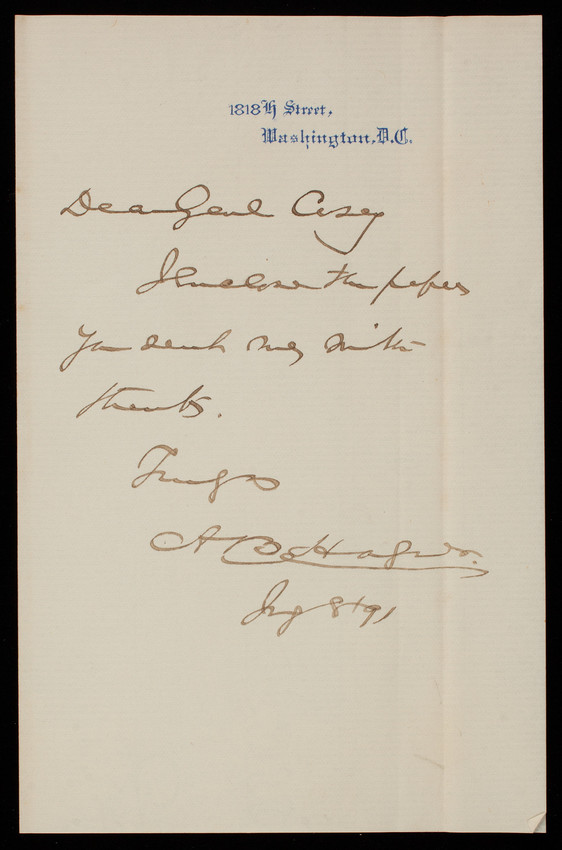 1818 H Street,
Washington, D.C.
Dear Genl Casey
I enclose the papers
you sent me, with
thanks.
Truly yrs
A B
8 / 91